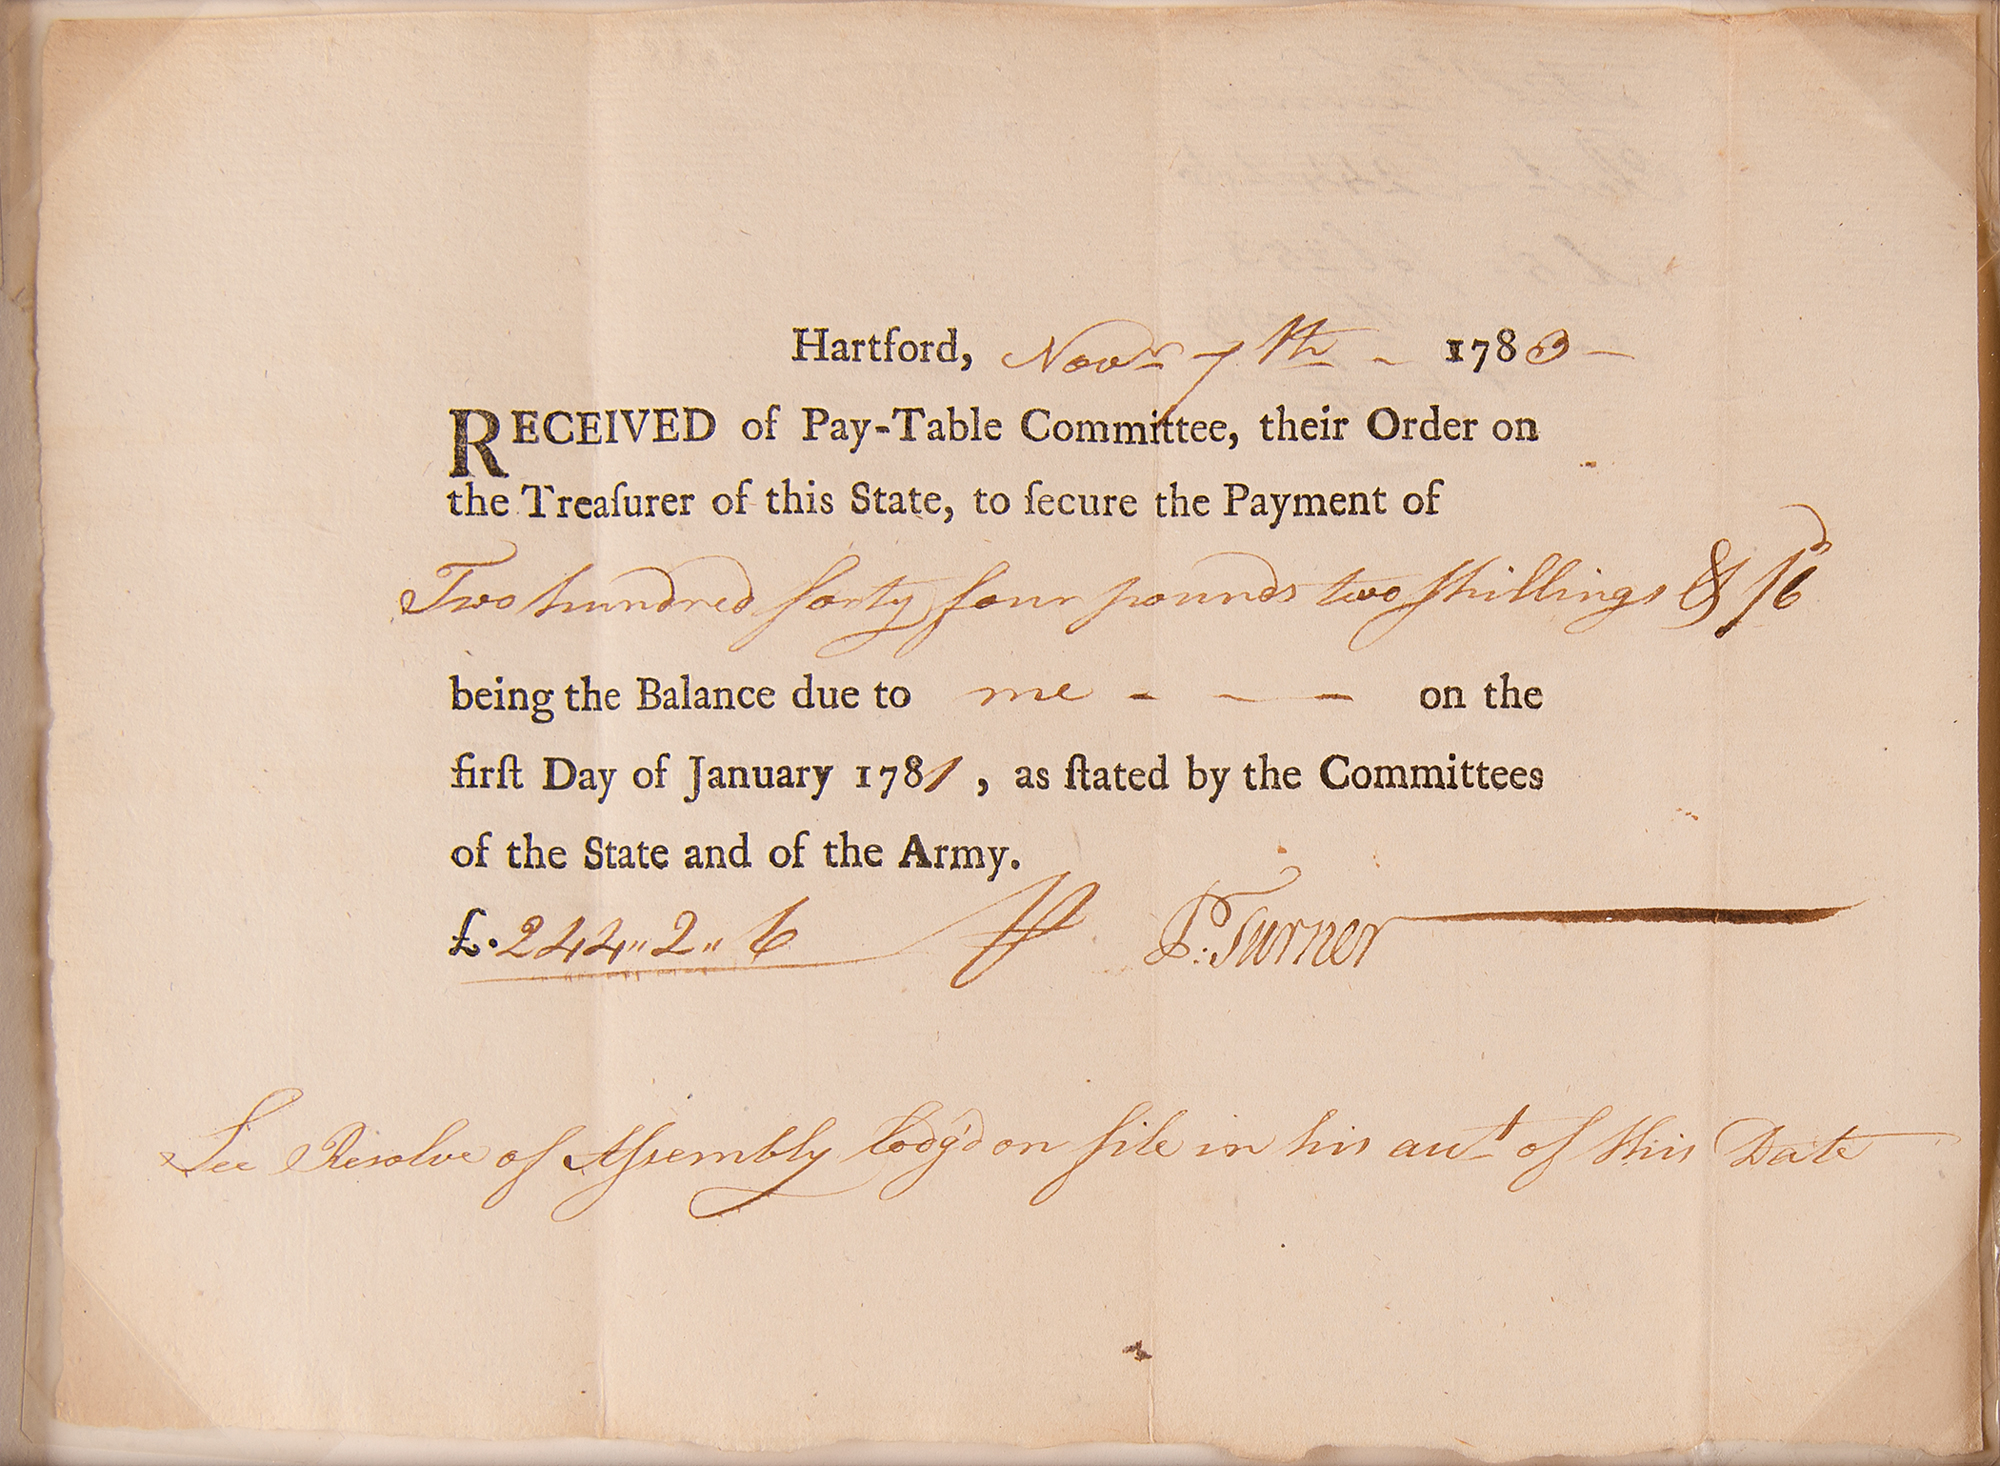 Hartford, Novr 7th - 1783 -
RECEIVED of Pay-Table Committee, their Order on
the Treaſurer of this State, to ſecure the Payment of
Two hundred forty four pounds two Shillings & /6d
being the Balance due to me - - - on the
firſt Day of January 1781, as ſtated by the Committees
of the State and of the Army.
£.244,, 2,, 6 P: Turner
See Resolve of Aſsembly lodg'd on file in his acct of this Date